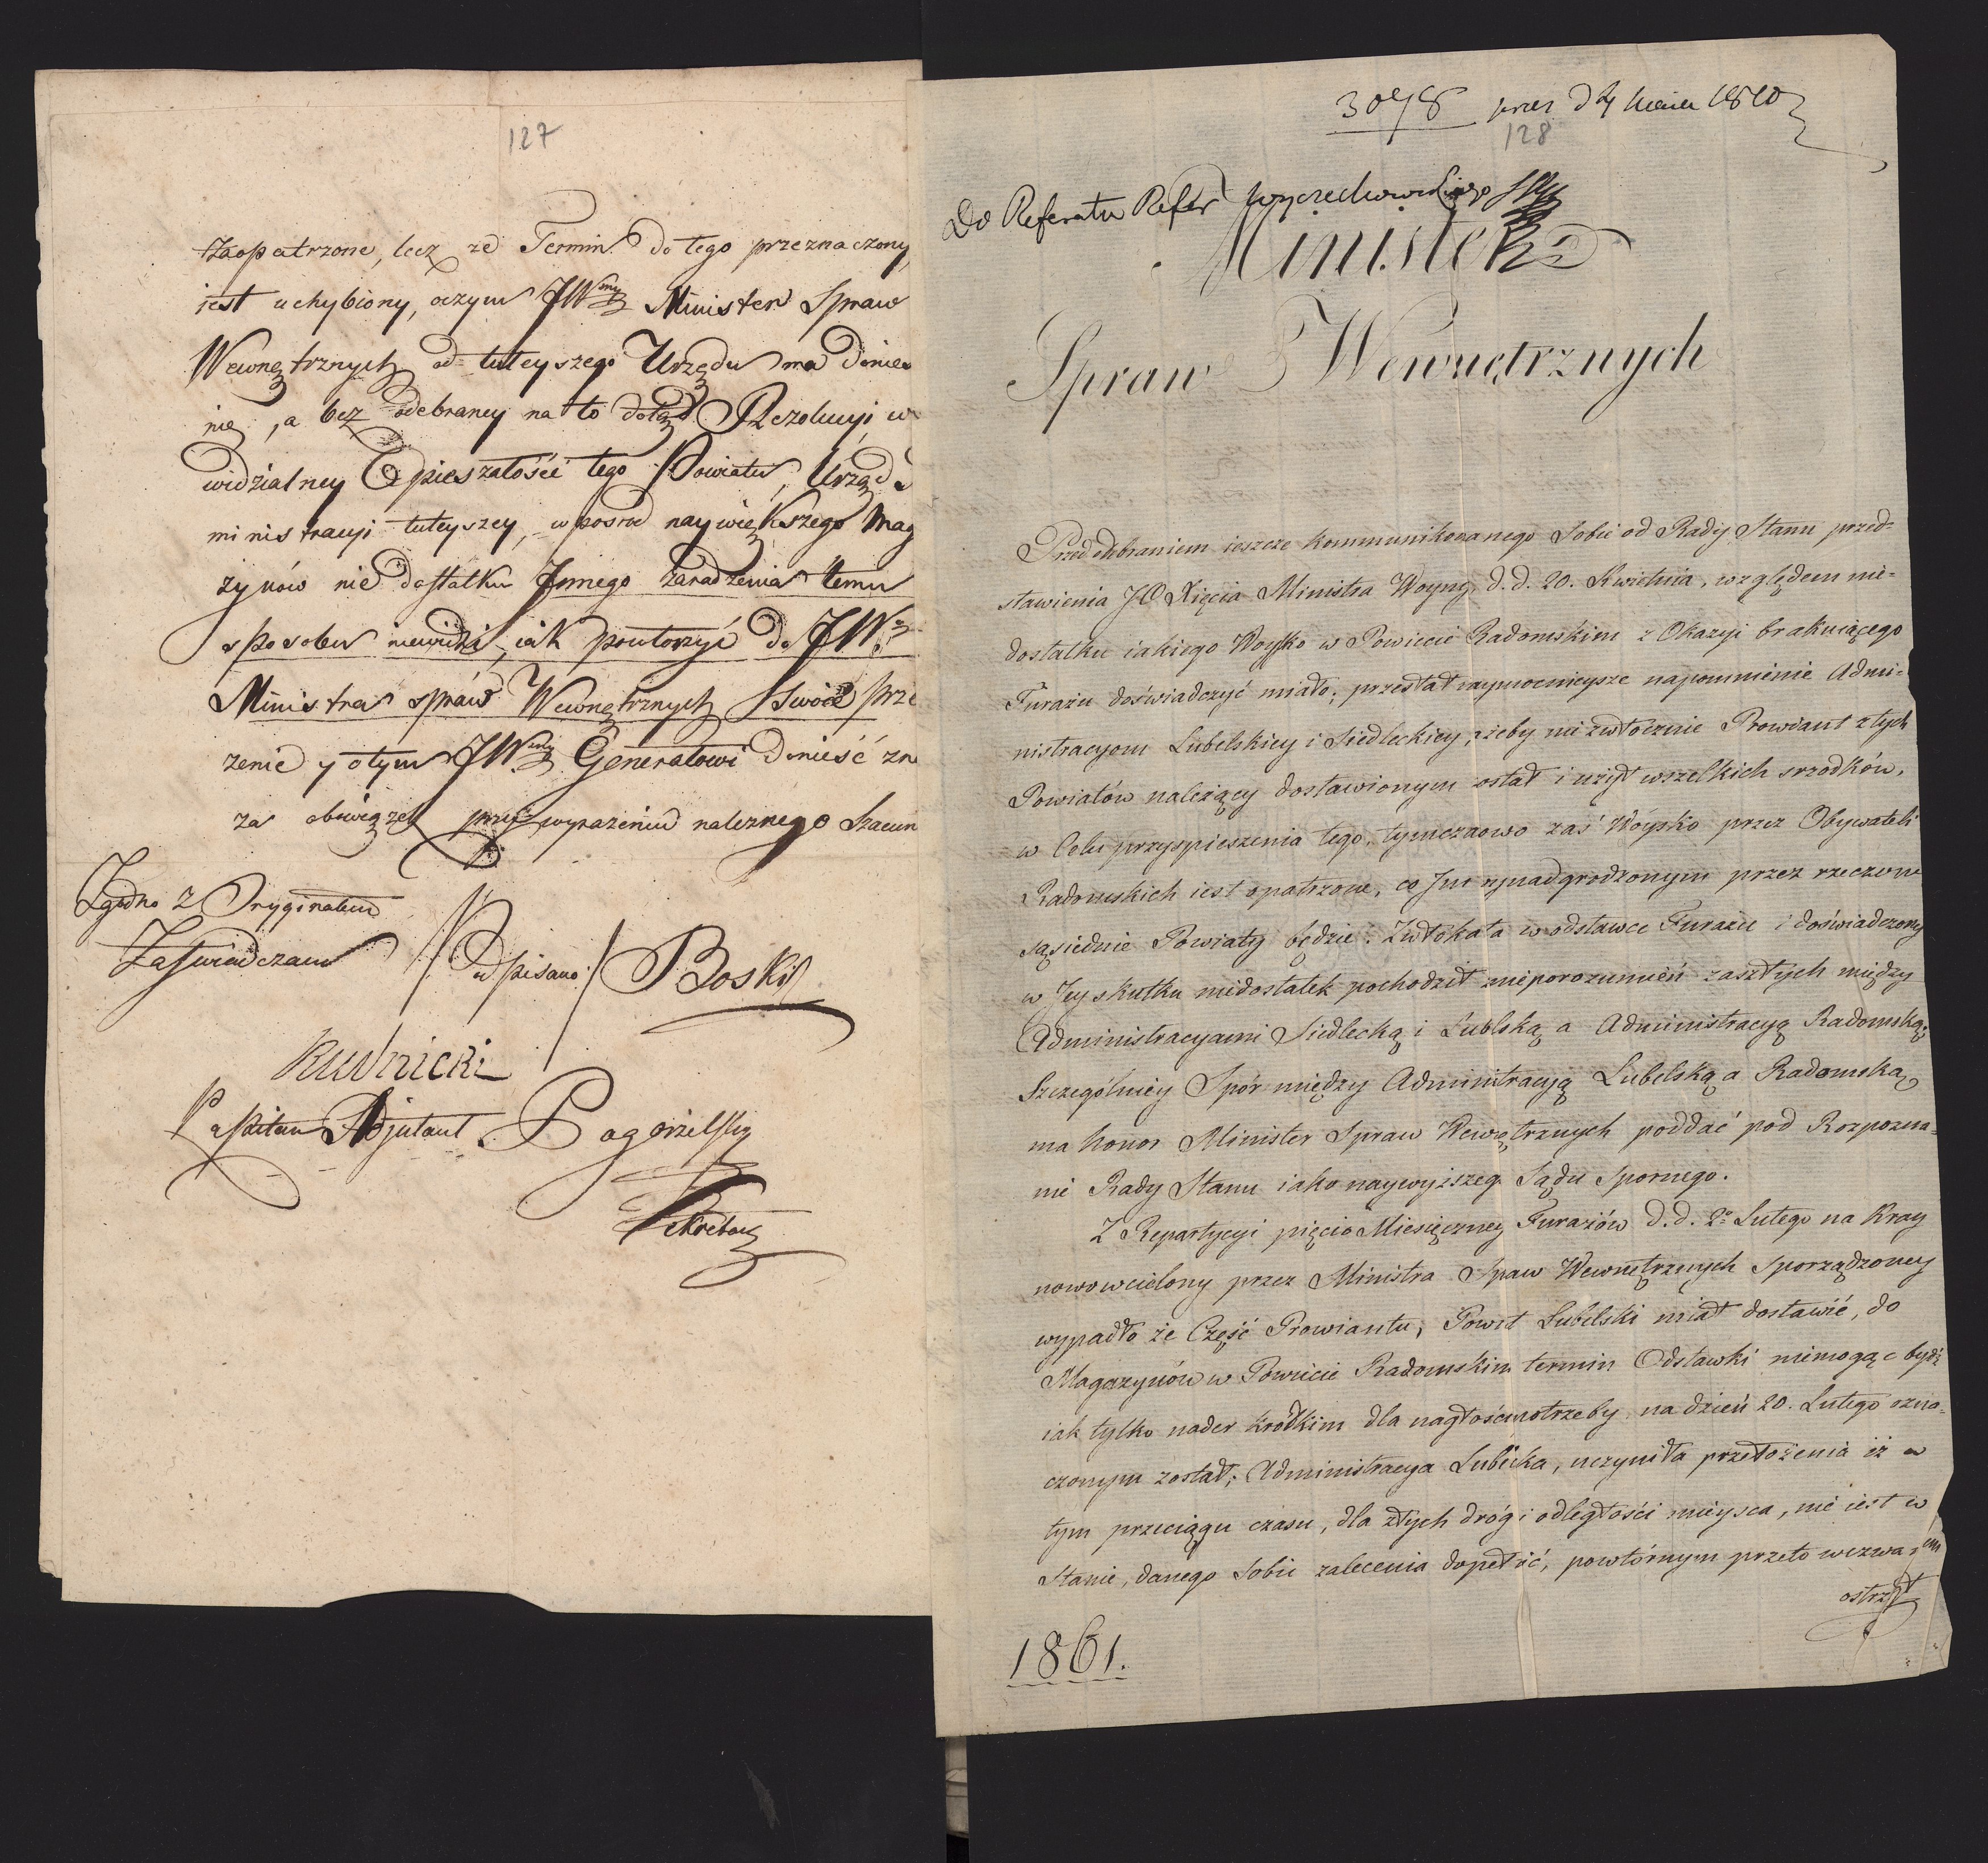 127
zaopatrzone, lecz że Termin do tego przeznaczony,
iest uchybiony, oczym JWmy Minister Spraw
Wewnętrznych od tuteyszego Urzędu ma donie
nie, a bez odebraney na to dotąd Rezolucyi, w
widzialney Opieszałości tego Powiatu, Urząd
ministracyi tuteyszey, wposrod naywiększego Mag
zynów nie dostatku Innego zaradzenia temu
sposobu niewidzi, iak powtorzyć do JWo
Ministra spráw Wewnętrznych Swóie prze
żenie y otym JWmu Generałowi donieść zn
za obowiązek przy wyrażeniu należnego Szacun
Zgodno z Oryginałem
Zaświadczam
/ Podpisano / Boski
Rudnicki
Kapitan Adjutant
Pogorzelski
Sekretarz
3078 prez d Maja 1810
128
Do Referatu Refer Woyciechowskiego
Minister
Spraw Wewnętrznych
Przed odebraniem ieszcze kommunikowanego Sobie od Rady Stanu przed=
stawienia JO Xięcia Ministra Woyny, d. d. 20. Kwietnia, względem nie=
dostatku iakiego Woysko w Powiecie Radomskim z Okazyi brakuiącego
Furażu doświadczyć miało; przesłał naymocnieysze napomnienie Admi=
nistracyom Lubelskiey i Siedleckiey, ażeby niezwłocznie Prowiant z tych
Powiatów należący dostawionym ostał i użył wszelkich srzodków,
w Celu przyspieszenia tego, tymczasowo zaś Woysko przez Obywateli
Radomskich iest opatrzone, co Im wynadgrodzonym przez rzeczone
sąsiednie Powiaty będzie. Zwłoka ta w odstawce Furażu i doświadczony
w Jey skutku niedostatek pochodził z nieporozumień zaszłych między
Administracyami Siedlecką i Lublską a Administracyą Radomską;
Szczególniey Spór między Adminitracyją Lubelską a Radomską,
ma honor Minister Spraw Wewnętrznych poddać pod Rozpozna=
nie Rady Stanu iako naywyższeg. Sądu Spornego.
Z Repartycyi pięcio Miesięczney Furażów d. d. 2o Lutego na Kray
nowowcielony przez Ministra Spaw Wewnętrznych Sporządzoney
wypadło że Część Prowiantu, Powiat Lubelski miał dostawić, do
Magazynów w Powiecie Radomskim termin Odstawki niemogąc bydź
iak tylko nader krótkim dla nagłości potrzeby, na dzień 20. Lutego ozna=
czonym został; Administracya Lubelska, uczyniła przełożenia iż w
tym przeciągu czasu, dla złych dróg i odległości mieysca, nie iest w
Stanie, danego Sobie zalecenia dopełnić, powtórnym przeto wezwaniem
ostrzegł
1861.